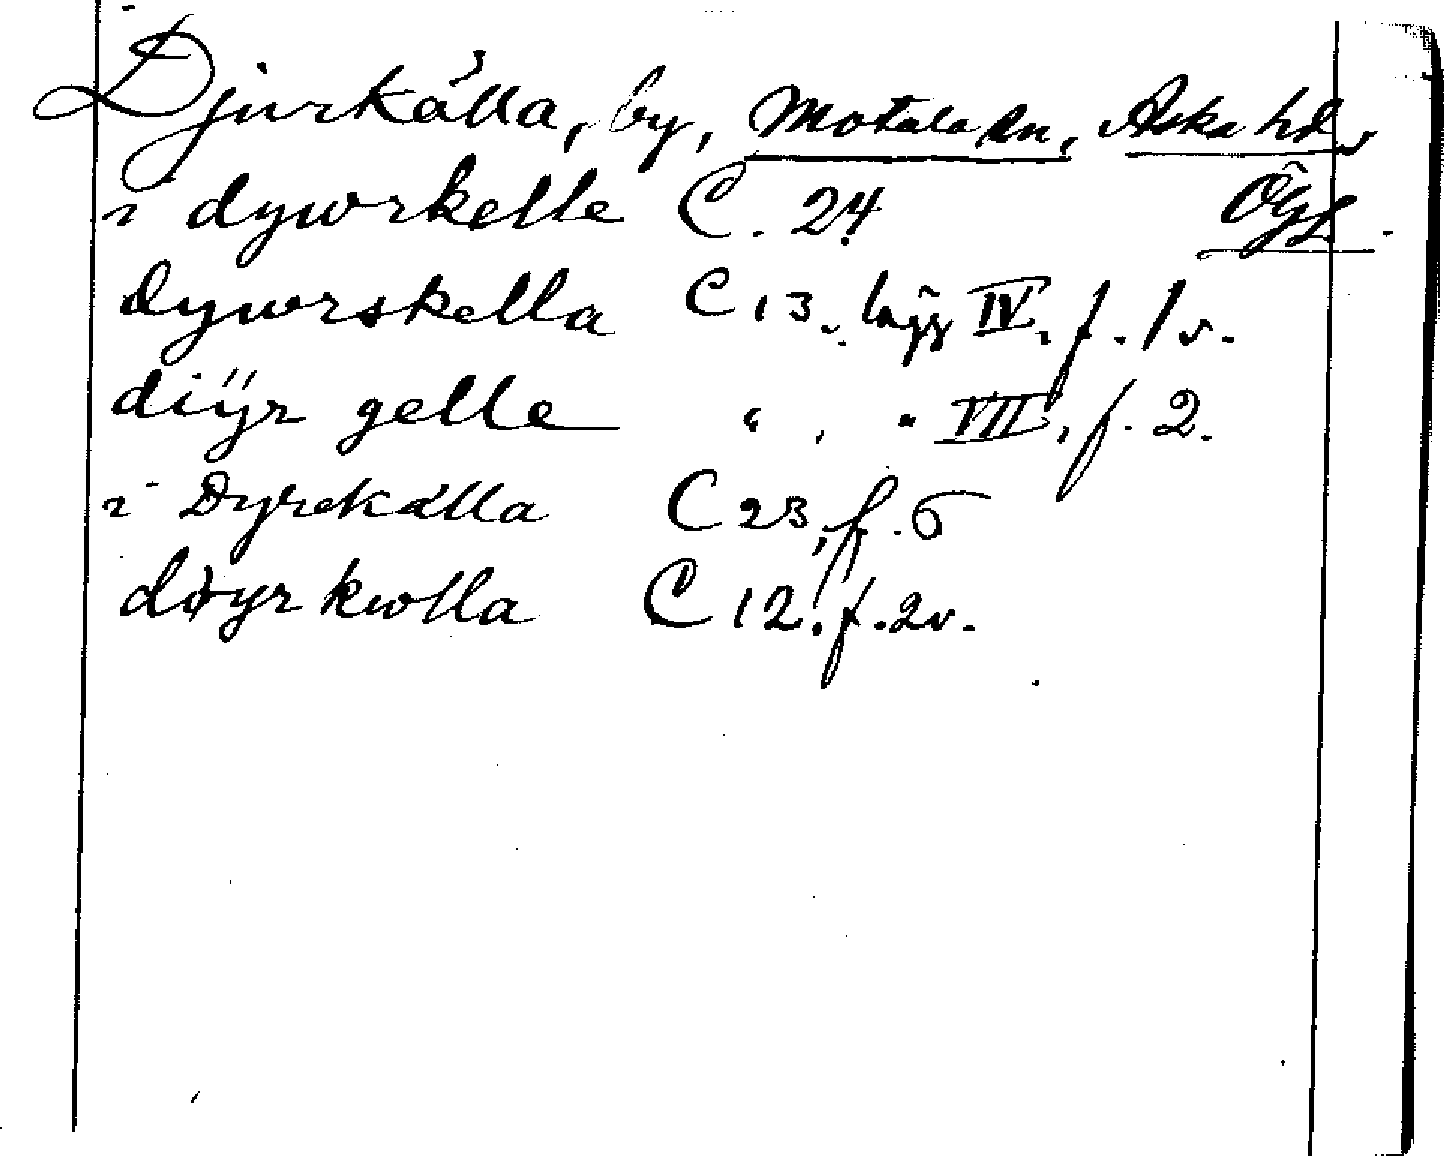 Djurkälla, by, Motala sn, Aska hd,
Ögl.
i dywrkelle C. 24
Dywrskella C 13. lägg IV, f. 1 v.
diÿr gelle " , " VII, f. 2.
i Dyrekälla C 23, f. 6
diyr kwlla C 12. f. 2v.